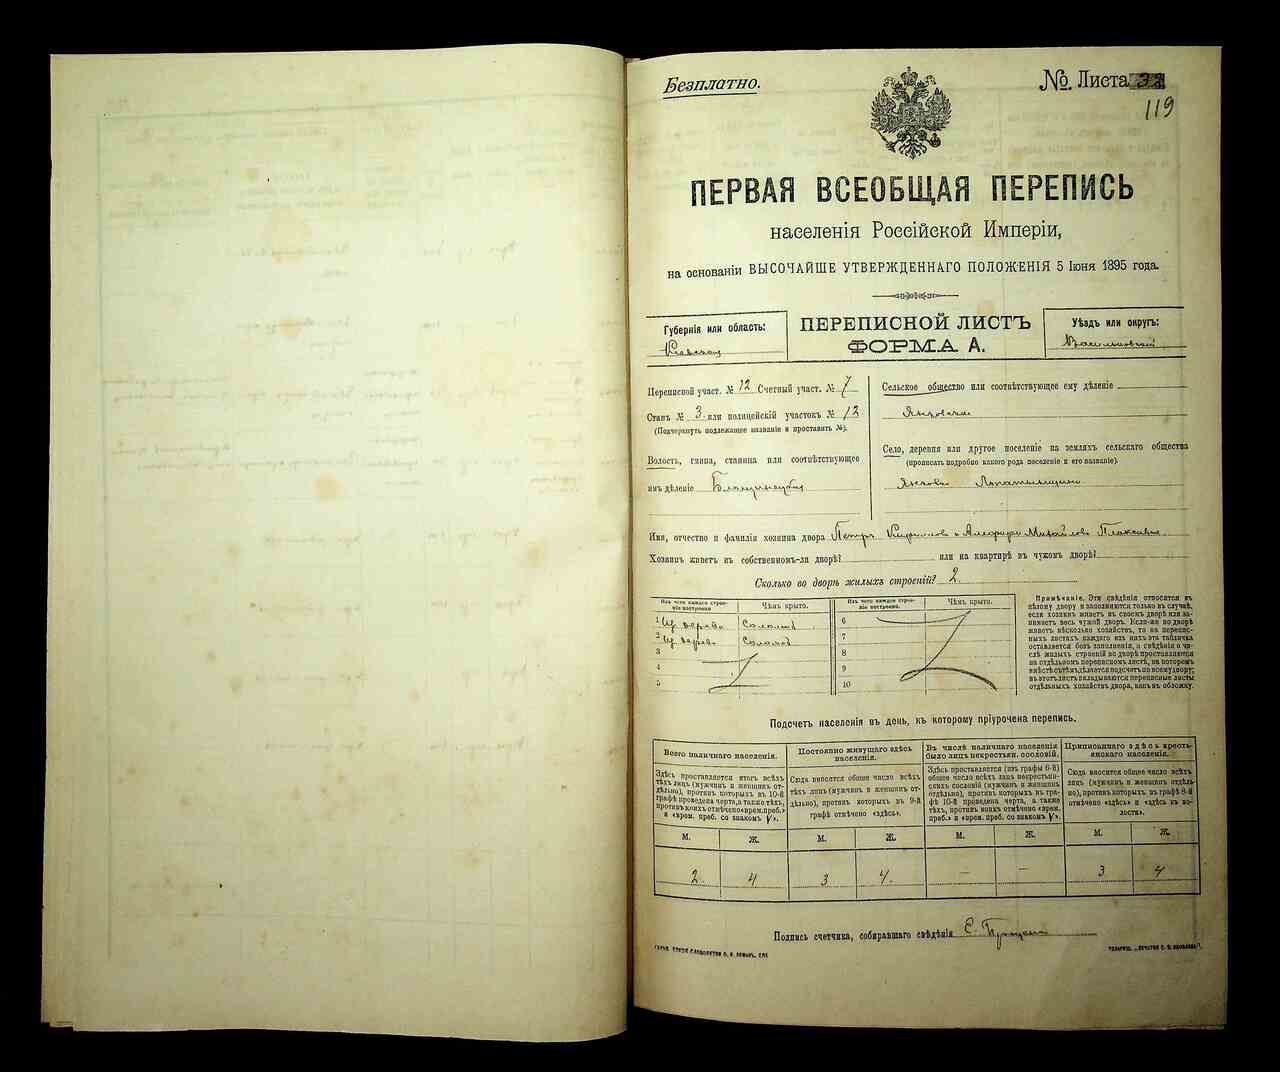 Безплатно.
№. Листа
119
ПЕРВАЯ ВСЕОБЩАЯ ПЕРЕПИСЬ
населенія Россійской Имперіи,
на основаніи ВЫСОЧАЙШЕ УТВЕРЖДЕННАГО ПОЛОЖЕНІЯ 5 Іюня 1895 года.
Губернія или область:
Кіевская
ПЕРЕПИСНОЙ ЛИСТЪ
ФОРМА А.
Уѣздъ или округъ:
Васильковскій
Переписной участ. № 12 Счетный участ. № 7
Станъ № 3 или полицейскій участокъ № 12
(Подчеркнуть подлежащее названіе и проставить №).
Волость, гмина, станица или соотвѣтствующее
имъ дѣленіе
Сельское общество или соотвѣтствующее ему дѣленіе
Село, деревня или другое поселеніе на земляхъ сельскаго общества
(прописать подробно какого рода поселеніе и его названіе).
Имя, отчество и фамилія хозяина двора Петръ
Хозяинъ живетъ въ собственномъ-ли дворѣ? или на квартирѣ въ чужомъ дворѣ?
Сколько во дворѣ жилыхъ строеній? 2.
Изъ чего каждое строеніе построено Чѣмъ крыто.
1 Из дерева Соломой
2 Из дерева Соломой
3
4
5
Изъ чего каждое строеніе построено. Чѣмъ крыто.
6
7
8
9
10
Примѣчаніе. Эти свѣдѣнія относятся къ
цѣлому двору и заполняются только въ случаѣ,
если хозяинъ живетъ въ своемъ дворѣ или занимаетъ
весь чужой дворъ. Если-же во дворѣ
живетъ нѣсколько хозяйствъ, то на переписныхъ
листахъ каждаго изъ нихъ эта табличка
оставляется безъ заполненія, а свѣдѣнія о числѣ
жилыхъ строеній во дворѣ проставляются
на отдѣльномъ переписномъ листѣ, на которомъ
вмѣстѣ съ тѣмъ дѣлается подсчетъ по всему двору;
въ этотъ листъ вкладываются переписные листы
отдѣльныхъ хозяйствъ двора, какъ въ обложку.
Подсчетъ населенія въ день, къ которому пріурочена перепись.
Всего наличнаго населенія.
Здѣсь проставляется итогъ всѣхъ
тѣхъ лицъ (мужчинъ и женщинъ отдѣльно),
противъ которыхъ въ 10-й
графѣ проведена черта, а также тѣхъ,
противъ коихъ отмѣчено «врем. преб.»
и «врем. преб. со знакомъ V».
М. Ж.
2 4
Постоянно живущаго здѣсь
населенія.
Сюда вносится общее число всѣхъ
тѣхъ лицъ (мужчинъ и женщинъ отдѣльно),
противъ которыхъ въ 9-й
графѣ отмѣчено «здѣсь».
М. Ж.
3 4.
Въ числѣ наличнаго населенія
было лицъ некрестьян. сословій.
Здѣсь проставляется (изъ графы 6-й)
общее число всѣхъ лицъ некрестьянскихъ
сословій (мужчинъ и женщинъ
отдѣльно), противъ которыхъ въ графѣ
10-й проведена черта, а также
тѣхъ, противъ коихъ отмѣчено «врем.
преб.» и «врем. преб. со знакомъ V».
М. Ж.
— —
Приписаннаго здѣсь крестьянскаго
населенія.
Сюда вносится общее число всѣхъ
лицъ (мужчинъ и женщинъ отдѣльно),
противъ которыхъ въ графѣ 8-й
отмѣчено «здѣсь» и «здѣсь въ волости».
М. Ж.
3 4
Подпись счетчика, собиравшаго свѣдѣнія